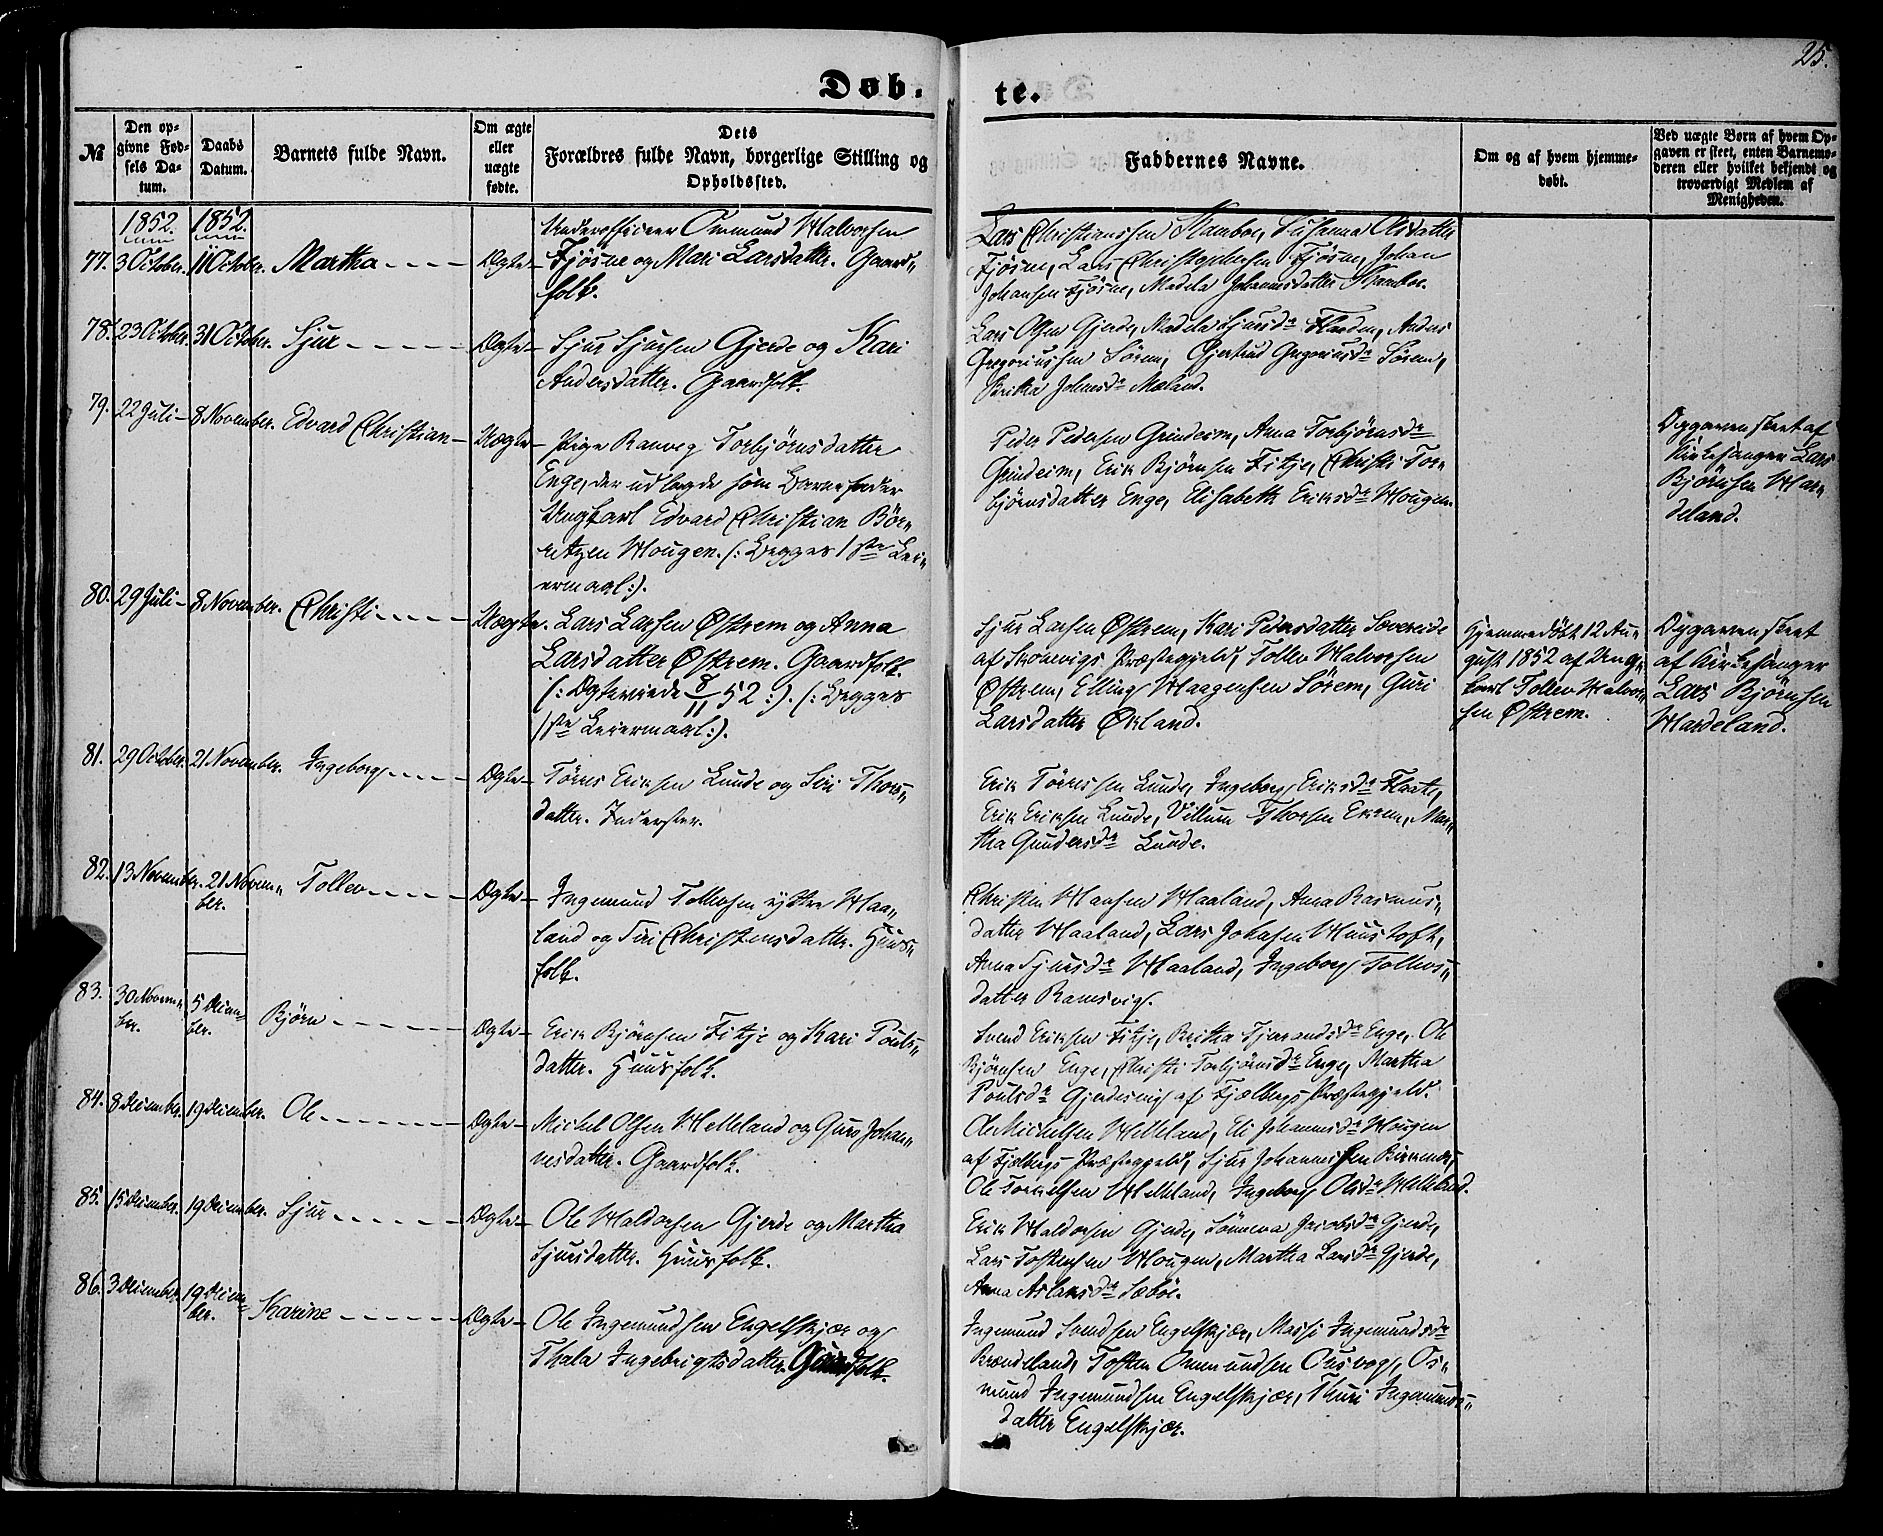 25.
Døb. te.
№
Den opgivne Fødsels Datum.
Daabs Datum.
Barnets fulde Navn.
Om ægte eller uægte fødte.
Dets Forældres fulde Navn, borgerlige Stilling og Opholdssted.
Faddernes Navne.
Om og af hvem hjemmedøbt.
Ved uægte Børn af hvem Opgaven er skeet, enten Barnemoderen eller hvilket bekjendt og troværdigt Medlem af Menigheden.
1852. 1852.
77. 3 October. 11 October. Martha Ægte
Underofficeer Ommund Halvorsen
Fjøsne og Mari Larsdatter. Gaard„
folk.
Lars Christianssen Kambe, Susanna Olsdatter
Fjøsne, Lars Christophersen Fjøsne, Johan
Johansen Fjøsne, Madela Johannesdatter Kamboe.
78. 23 October. 31 October. Sjur Ægte
Sjur Sjursen Gjerde og Kari
Andersdatter. Gaardfolk.
Lars Olsen Gjerde, Madela Sjursdr Anders
Gregoriussen Sørem, Gjertrud Gregoriusdr Sørem,
Britha Johnsdr Mæland.
79. 22 Juli 8 November. Edvard Christian Uægte
Pige Ranveg Torbjørnsdatter
Enge, der udlagde som Barnefader
Ungkarl Edvard Christian Bør„
retzen Hougen. (: Begges 1ste Lei„
ermaal:).
Peder Pedersen Grindeim, Anna Torbjørnsdr
Grindeim, Erik Bjørnsen Fitje, Christi Tor„
bjørnsdatter Enge, Elisabeth Eriksdr Hougen.
Opgaven skeet af
Kirkesanger Lars
Bjørnsen Har„
deland.
80. 29 Juli 8 November. Christi Uægte.
Lars Larsen Østrem og Anna
Larsdatter Østrem. Gaardfolk.
(: Ægteviede 8/11 52:). (: Begges
1ste Leiermaal:).
Sjur Larsen Østrem, Kari Pedersdatter Sævereide
af Skonevigs Præstegjeld, Tollev Halvorsen
Østrem, Elling Haagensen Sørem, Guri
Larsdatter Økland.
Hjemmedøbt 12 Au„
gust 1852 af Ung„
karl Tollev Halvor„
sen Østrem.
Opgaven skeet
af Kirkesanger
Lars Bjørnsen
Hardeland.
81. 29 October. 21 November. Ingeborg Ægte
Tørres Eriksen Lunde og Siri Thors„
datter. Inderster.
Erik Tørressen Lunde, Ingeborg Eriksdr Flaate,
Erik Eriksen Lunde, Villum Thorsen Ekrem, Mar„
tha Gundersdr Lunde.
82. 13 November. 21 Novem„
ber. Tollev Ægte
Ingemund Tollevsen yttre Haa„
land og Siri Christensdatter. Huus„
folk.
Christen Hansen Haaland, Anna Rasmus„
datter Haaland, Lars Johnsen Huustoft,
Anna Sjursdr Haaland, Ingeborg Tollevs„
datter Ramsvig.
83. 30 Novem„
ber. 5 Decem„
ber. Bjørn Ægte
Erik Bjørnsen Fitje og Kari Pouls„
datter. Huusfolk.
Svend Eriksen Fitje, Britha Tjerandsdr Enge, Ole
Bjørnsen Enge, Christi Torbjørnsdr Enge, Martha
Poulsdr af Fjælbergs Præstegjeld.
84. 8 December. 19 December. Ole Ægte
Michel Olsen Helleland og Guro Johan„
nesdatter. Gaardfolk.
Ole Michelsen Helleland, Eli Johannesdr Hougen
af Fjelbergs Præstegjeld, Sjur Johannessen
Ole Torkelsen Helleland, Ingeborg Olsdr Helleland.
85. 15 December. 19 December. Sjur Ægte
Ole Haldorsen Gjerde og Martha
Sjursdatter. Huusfolk.
Erik Haldorsen Gjerde, Sønneva Jacobsdr Gjerde,
Lars Tostensen Hougen, Martha Larsdr Gjerde,
Anna Aslaksdr Sæbøe.
86. 3 December. 19 Decem„
ber. Karine Ægte
Ole Ingemundsen Engelskjær og
Thala Ingebrigtsdatter. Gaardfolk.
Ingemund Svendsen Engelskjær, Massi Ingemundsdr
Brændeland, Tosten Ommundsen Os„
mund Ingemundsen Engelskjær, Thuri Ingemunds„
datter Engelskjær.